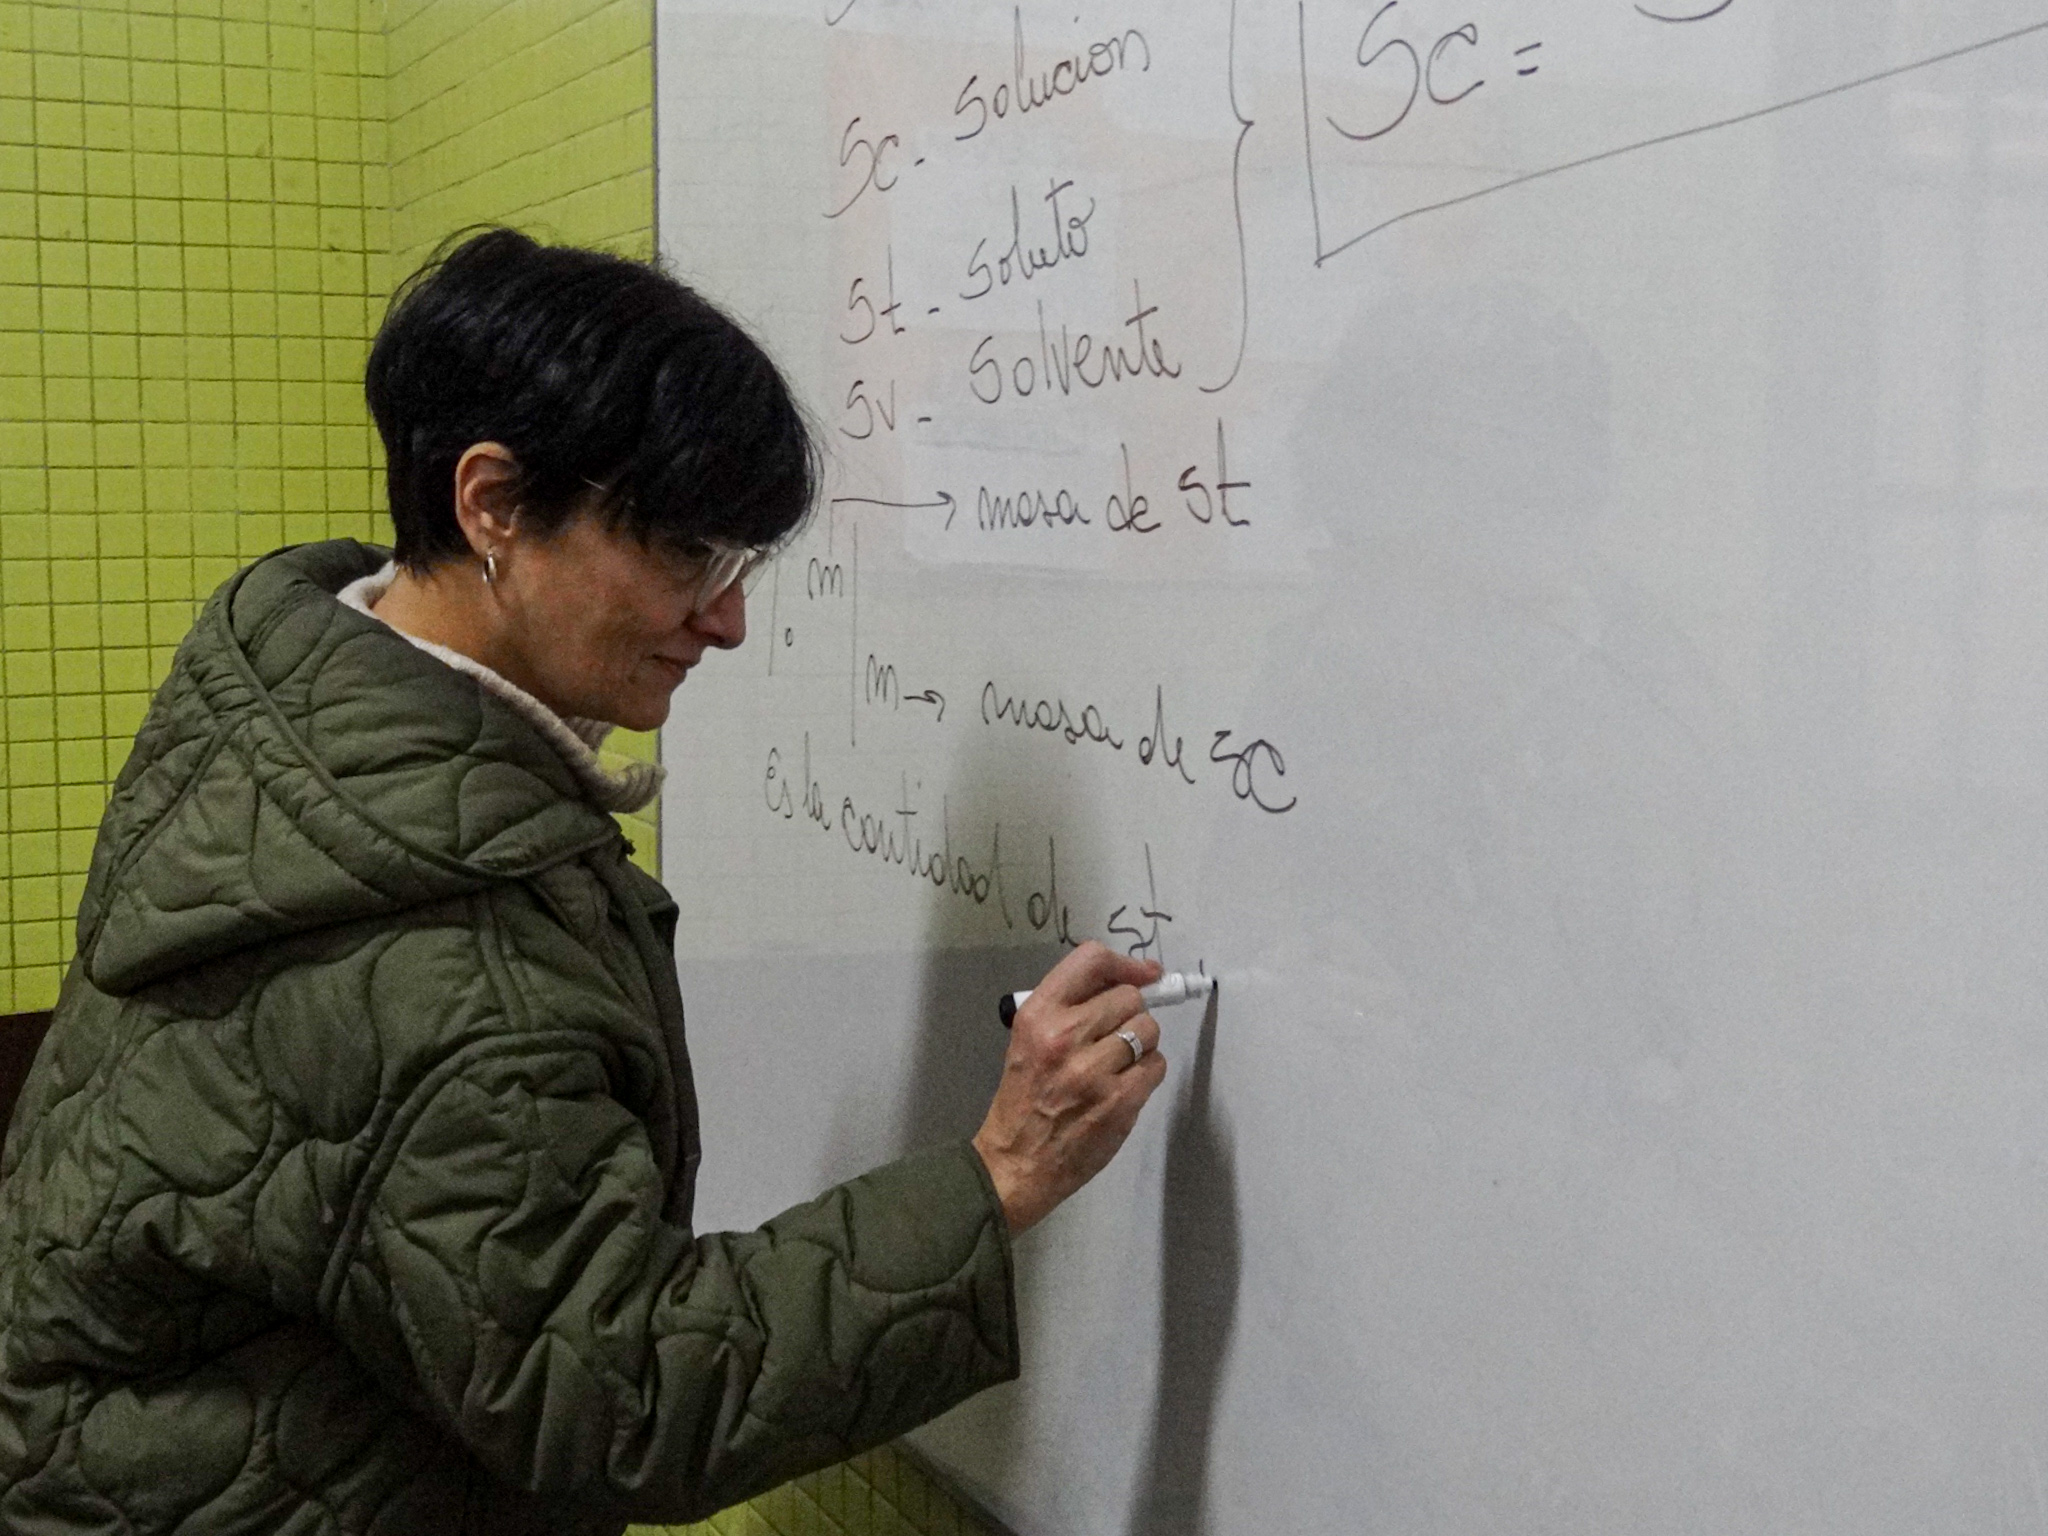 Sc - Solucion
St - Soluto
Sv - Solvente
Sc =
→ masa de St
m
m → masa de SC
Es la cantidad de St